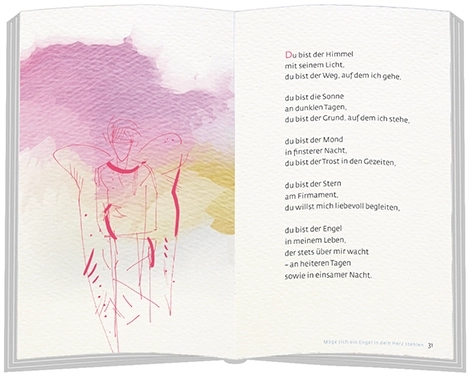 Du bist der Himmel
mit seinem Licht,
du bist der Weg, auf dem ich gehe,
du bist die Sonne
an dunklen Tagen,
du bist der Grund, auf dem ich stehe,
du bist der Mond
in finsterer Nacht,
du bist der Trost in den Gezeiten,
du bist der Stern
am Firmament,
du willst mich liebevoll begleiten,
du bist der Engel
in meinem Leben,
der stets über mir wacht
– an heiteren Tagen
sowie in einsamer Nacht.
Möge sich ein Engel in dein Herz stehlen 31